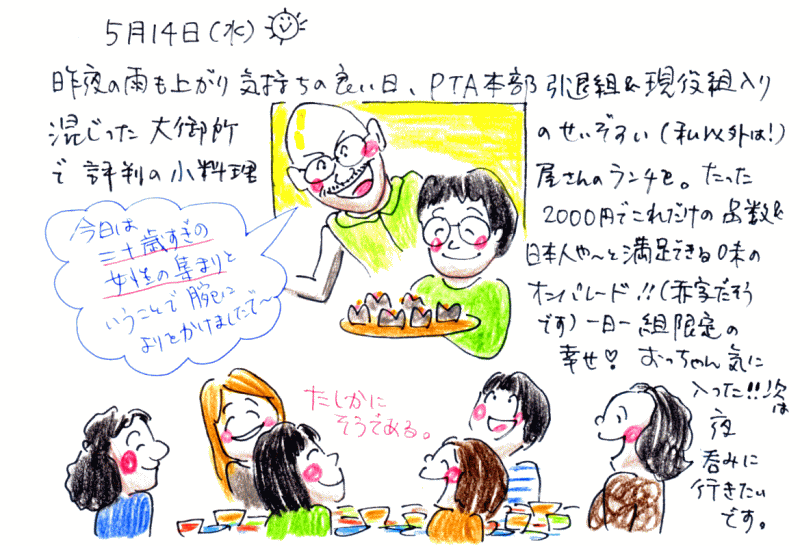 5月14日(水)
昨夜の雨も上がり気持ちの良い日、PTA本部引退組&現役組入り
混じった大御所
のせいぞろい(私以外は!)
で評判の小料理
屋さんのランチを。たった
2000円でこれだけの品数&
日本人や〜と満足できるお味の
オンパレード!!(赤字だそう
です)一日一組限定の
幸せ♡ おっちゃん気に
入った!!次は
夜
呑みに
行きたい
です。
今日は
三十歳すぎの
女性の集まりと
いうことで腕に
よりをかけましたで〜
たしかに
そうである。